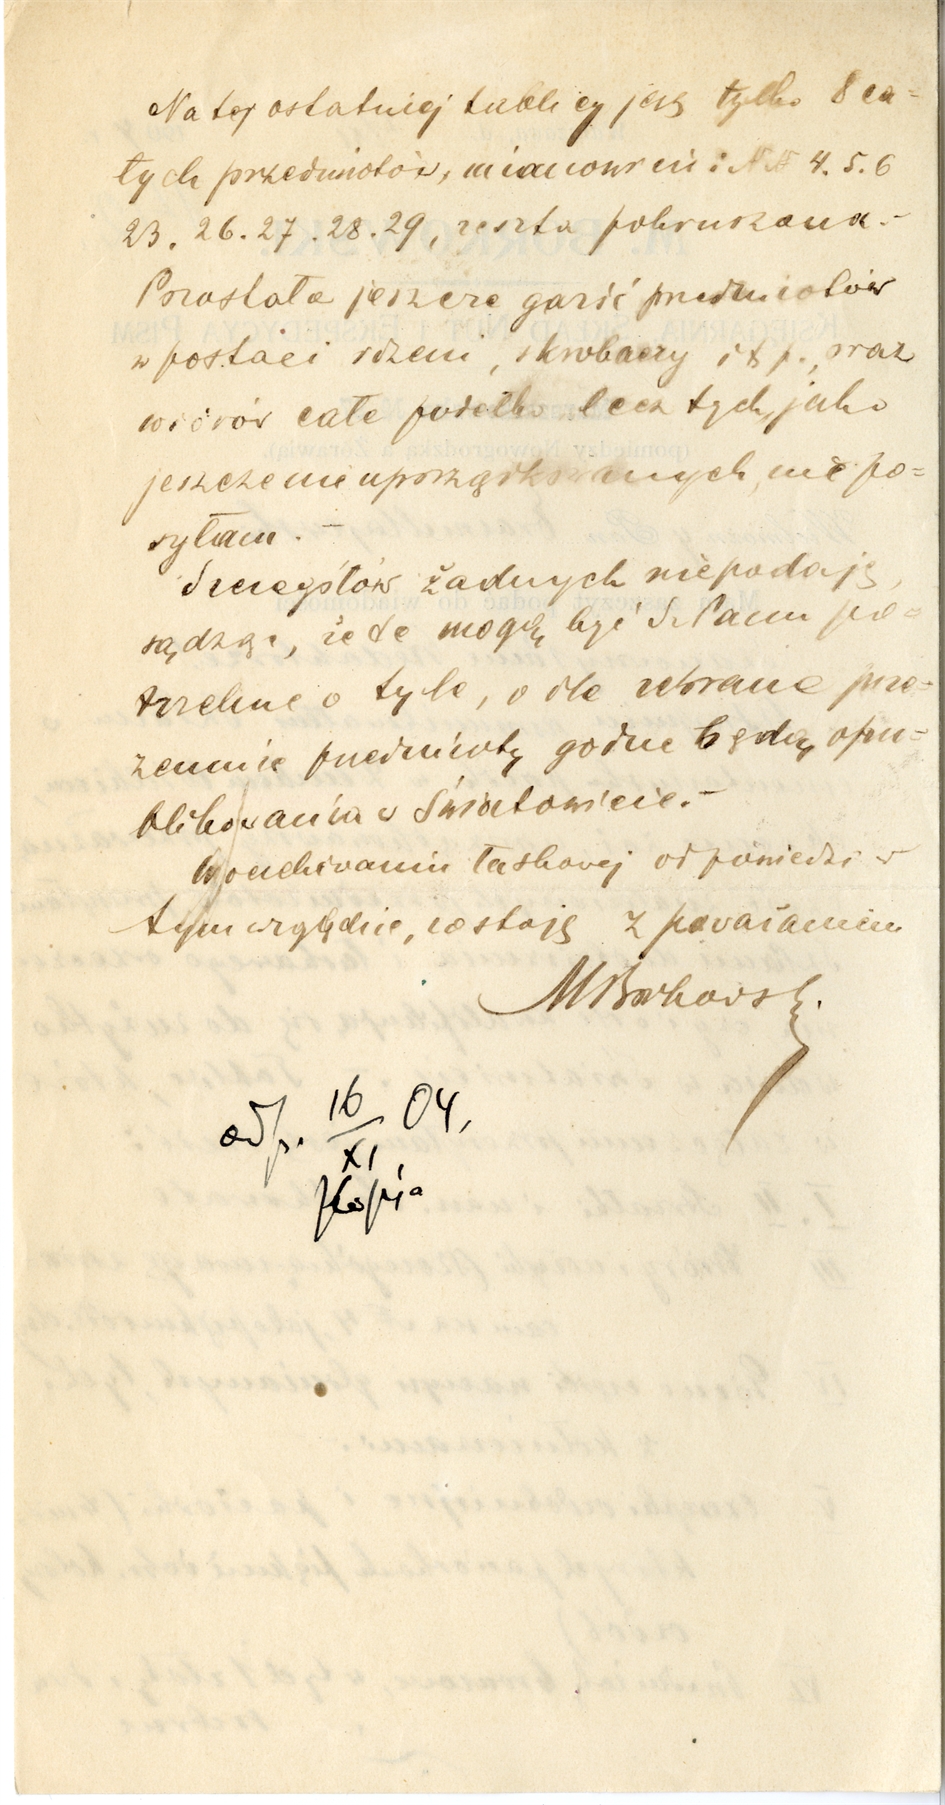 Na tej ostatniej tablicy jest tylko 8 ca=
łych przedmiotów, mianowicie: NN 4. 5. 6
23. 26. 27. 28. 29, reszta pokruszona.-
Pozostała jeszcze garść przedmiotów
w postaci rdzeni, skrobaczy i t p., oraz
wiórów całe pudełko lecz tych, jako
jeszcze nieuporządkowanych, nie po=
syłam. -
Szczegółów żadnych nie podaję,
sądząc, że te mogą być Sz Panu po=
trzebne o tyle, o ile zebrane prze=
zemnie przedmioty godne będą opu=
blikowania w Światowicie.-
W oczekiwaniu łaskawej odpowiedzi w
tym względzie, zostaję z poważaniem
MBorkowski.
odp. 16/XI 04,
Kopia